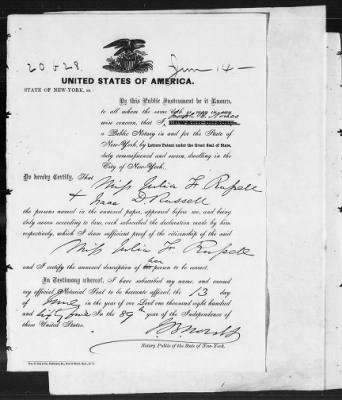 20628
June 14
UNITED STATES OF AMERICA.
STATE OF NEW-YORK, ss:
By this Public Instrument be it Known,
to all whom the same doth or may
wise concern, that I, Joseph B. Nones
a Public Notary in and for the State of
New-York, by Letters Patent under the Great Seal of State,
duly commissioned and sworn, dwelling in the
City of New-York.
Do hereby Certify, That
Miss Julia F Russell
+ Isaac D Russell
the persons named in the annexed paper, appeared before me, and being
duly sworn according to law, each subscribed the declaration made by him
respectively, which I deem sufficient proof of the citizenship of the said
Miss Julia F Russell
her
and I certify the annexed description of person to be correct.
In Testimony whereof, I have subscribed my name, and caused
my official Notarial Seal to be hereunto affixed, the 13 day
of June in the year of our Lord one thousand eight hundred
and sixty five In the 89th year of the Independence of
these United States.
J B Nones
Notary Public of the State of New-York.